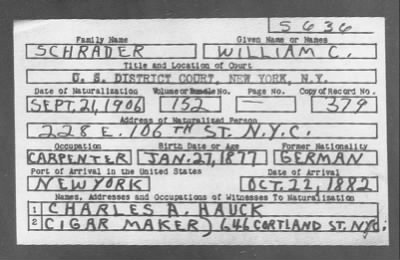 S 636
Family Name Given Name or Names
SCHRADER WILLIAM C.
Title and Location of Court
U. S. DISTRICT COURT, NEW YORK, N.Y.
Date of Naturalization Volume or Bundle No. Page No. Copy of Record No.
SEPT. 21, 1906 152 — 379
Address of Naturalized Person
228 E. 106 TH ST. N.Y.C.
Occupation Birth Date or Age Former Nationality
CARPENTER JAN. 27, 1877 GERMAN
Port of Arrival in the United States Date of Arrival
NEW YORK OCT. 22, 1882
Names, Addresses and Occupations of Witnesses To Naturalization
1 CHARLES A. HAUCK
2 CIGAR MAKER) 646 CORTLAND ST. N.Y.C.